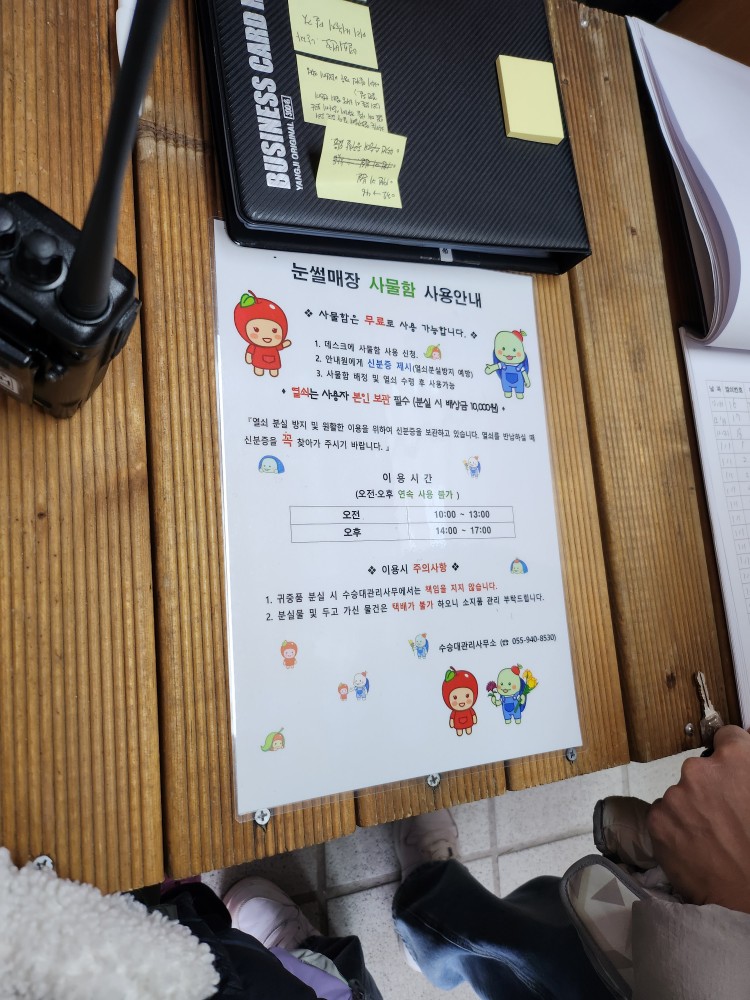 BUSINESS CARD
YANGJI ORIGINAL 300
눈썰매장 사물함 사용안내
❖ 사물함은 무료로 사용 가능합니다. ❖
1. 데스크에 사물함 사용 신청.
2. 안내원에게 신분증 제시(열쇠분실방지 예방)
3. 사물함 배정 및 열쇠 수령 후 사용가능
♦ 열쇠는 사용자 본인 보관 필수 (분실 시 배상금 10,000원) ♦
『열쇠 분실 방지 및 원활한 이용을 위하여 신분증을 보관하고 있습니다. 열쇠를 반납하실 때
신분증을 꼭 찾아가 주시기 바랍니다. 』
이 용 시 간
(오전·오후 연속 사용 불가 )
오전 10:00 ~ 13:00
오후 14:00 ~ 17:00
❖ 이용시 주의사항 ❖
1. 귀중품 분실 시 수승대관리사무에서는 책임을 지지 않습니다.
2. 분실물 및 두고 가신 물건은 택배가 불가 하오니 소지품 관리 부탁드립니다.
수승대관리사무소 (☎ 055-940-8530)